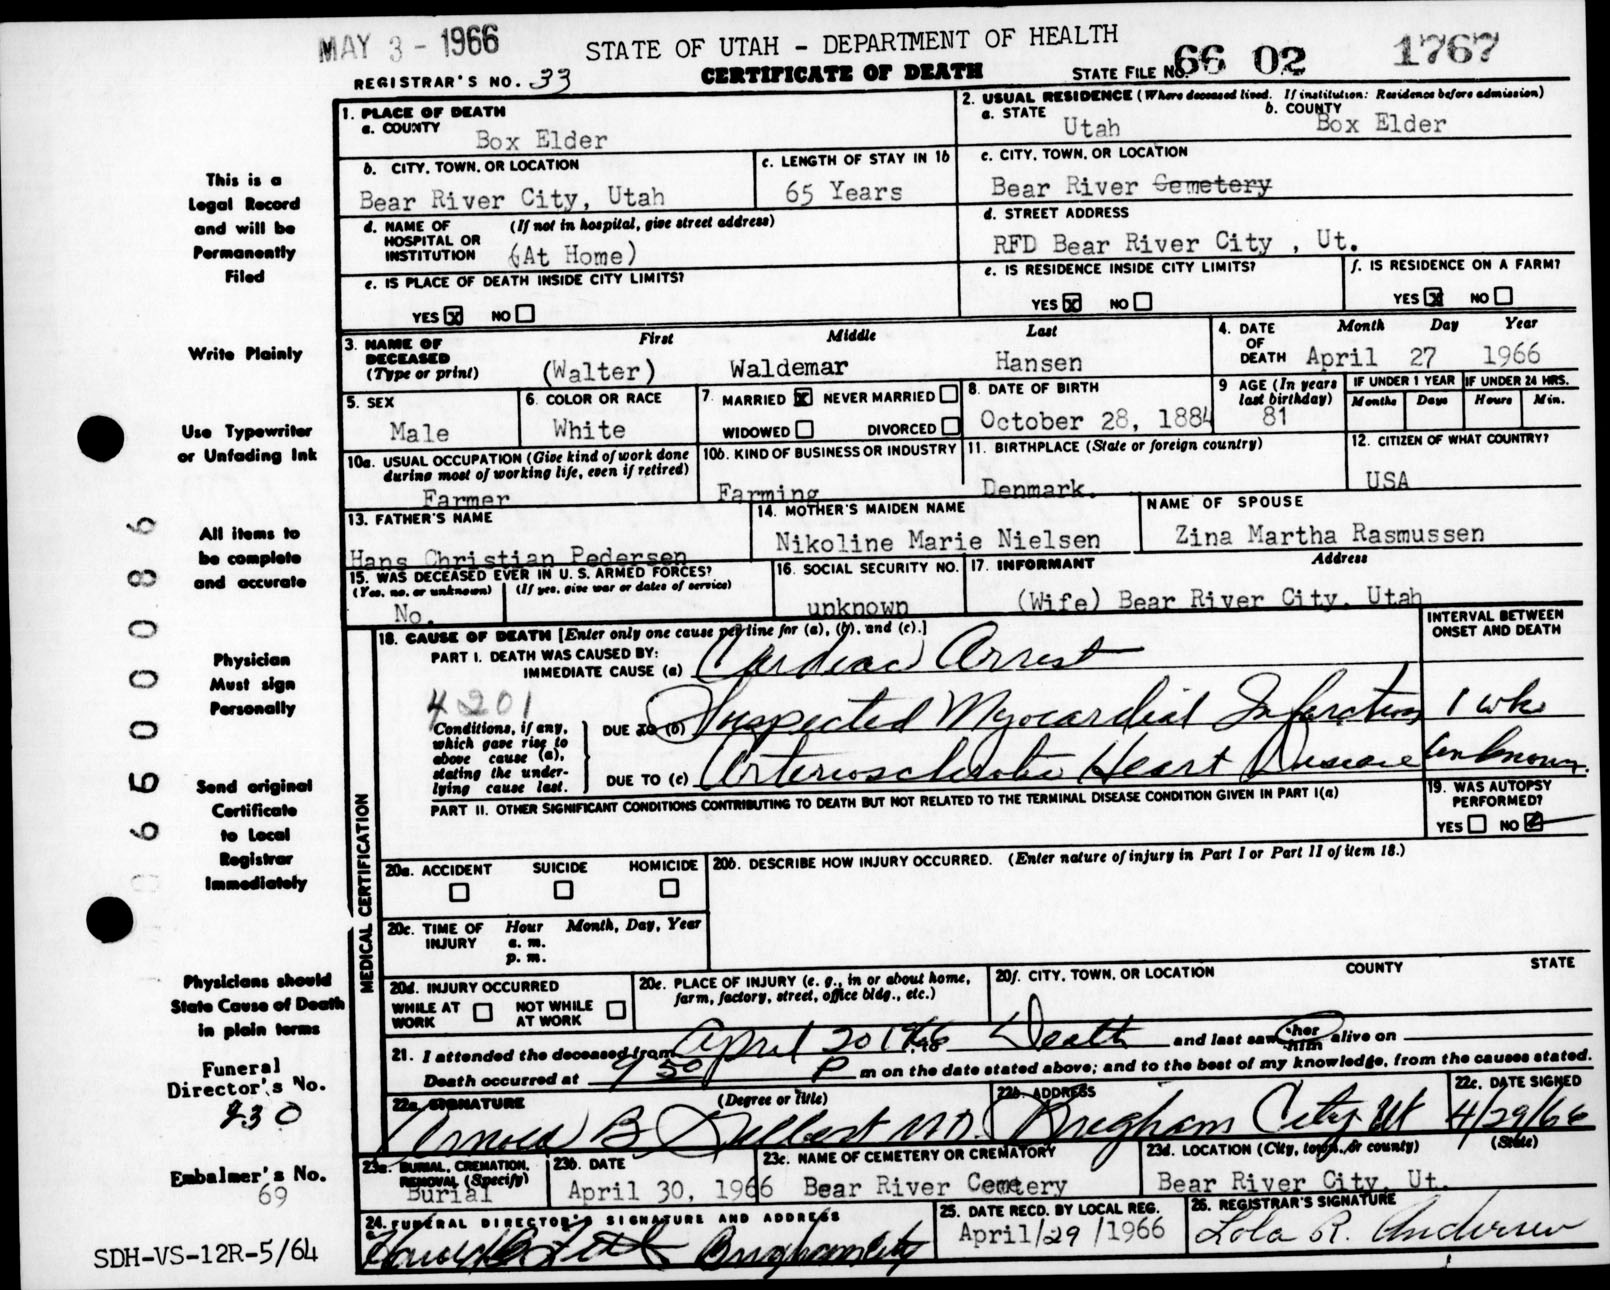 MAY 3 - 1966
STATE OF UTAH - DEPARTMENT OF HEALTH
CERTIFICATE OF DEATH
REGISTRAR'S NO. 33
STATE FILE NO. 66 02 1767
This is a Legal Record and will be Permanently Filed
Write Plainly
Use Typewriter or Unfading Ink
All items to be complete and accurate
Physician Must sign Personally
Send original Certificate to Local Registrar Immediately
Physicians should State Cause of Death in plain terms
Funeral Director's No.
230
Embalmer's No.
69
SDH-VS-12R-5/64
6600086
1. PLACE OF DEATH
a. COUNTY
Box Elder
2. USUAL RESIDENCE (Where deceased lived. If institution: Residence before admission)
a. STATE
Utah
b. COUNTY
Box Elder
b. CITY, TOWN, OR LOCATION
Bear River City, Utah
c. LENGTH OF STAY IN 1b
65 Years
c. CITY, TOWN, OR LOCATION
Bear River Cemetery
d. NAME OF HOSPITAL OR INSTITUTION
(If not in hospital, give street address)
(At Home)
d. STREET ADDRESS
RFD Bear River City , Ut.
e. IS PLACE OF DEATH INSIDE CITY LIMITS?
YES X NO
e. IS RESIDENCE INSIDE CITY LIMITS?
YES X NO
f. IS RESIDENCE ON A FARM?
YES X NO
3. NAME OF DECEASED (Type or print)
First Middle Last
(Walter) Waldemar Hansen
4. DATE OF DEATH
Month Day Year
April 27 1966
5. SEX
Male
6. COLOR OR RACE
White
7. MARRIED X NEVER MARRIED
WIDOWED DIVORCED
8. DATE OF BIRTH
October 28, 1884
9 AGE (In years last birthday)
81
IF UNDER 1 YEAR
Months Days
IF UNDER 24 HRS.
Hours Min.
10a. USUAL OCCUPATION (Give kind of work done during most of working life, even if retired)
Farmer
10b. KIND OF BUSINESS OR INDUSTRY
Farming
11. BIRTHPLACE (State or foreign country)
Denmark.
12. CITIZEN OF WHAT COUNTRY?
USA
13. FATHER'S NAME
Hans Christian Pedersen
14. MOTHER'S MAIDEN NAME
Nikoline Marie Nielsen
NAME OF SPOUSE
Zina Martha Rasmussen
15. WAS DECEASED EVER IN U. S. ARMED FORCES?
(Yes, no, or unknown) (If yes, give war or dates of service)
No.
16. SOCIAL SECURITY NO.
unknown
17. INFORMANT Address
(Wife) Bear River City, Utah
MEDICAL CERTIFICATION
18. CAUSE OF DEATH [Enter only one cause per line for (a), (b), and (c).]
INTERVAL BETWEEN ONSET AND DEATH
PART I. DEATH WAS CAUSED BY:
IMMEDIATE CAUSE (a) Cardiac Arrest
4201
Conditions, if any, which gave rise to above cause (a), stating the underlying cause last.
DUE TO (b) Suspected Myocardial Infarction 1 wk
DUE TO (c) Arteriosclerotic Heart Disease unknown.
PART II. OTHER SIGNIFICANT CONDITIONS CONTRIBUTING TO DEATH BUT NOT RELATED TO THE TERMINAL DISEASE CONDITION GIVEN IN PART I(a)
19. WAS AUTOPSY PERFORMED?
YES NO
20a. ACCIDENT SUICIDE HOMICIDE
20b. DESCRIBE HOW INJURY OCCURRED. (Enter nature of injury in Part I or Part II of item 18.)
20c. TIME OF INJURY
Hour Month, Day, Year
a. m.
p. m.
20d. INJURY OCCURRED
WHILE AT WORK NOT WHILE AT WORK
20e. PLACE OF INJURY (e. g., in or about home, farm, factory, street, office bldg., etc.)
20f. CITY, TOWN, OR LOCATION COUNTY STATE
21. I attended the deceased from April 20 1966 to Death and last saw her him alive on
Death occurred at 9 50 P m on the date stated above; and to the best of my knowledge, from the causes stated.
22a. SIGNATURE (Degree or title)
Arnold B M.D.
22b. ADDRESS
Brigham City, Ut
22c. DATE SIGNED
4/29/66
23a. BURIAL, CREMATION, REMOVAL (Specify)
Burial
23b. DATE
April 30, 1966
23c. NAME OF CEMETERY OR CREMATORY
Bear River Cemetery
23d. LOCATION (City, town, or county) (State)
Bear River City, Ut.
24. FUNERAL DIRECTOR'S SIGNATURE AND ADDRESS
Brigham City
25. DATE RECD. BY LOCAL REG.
April/29/1966
26. REGISTRAR'S SIGNATURE
Lola R. Andersen